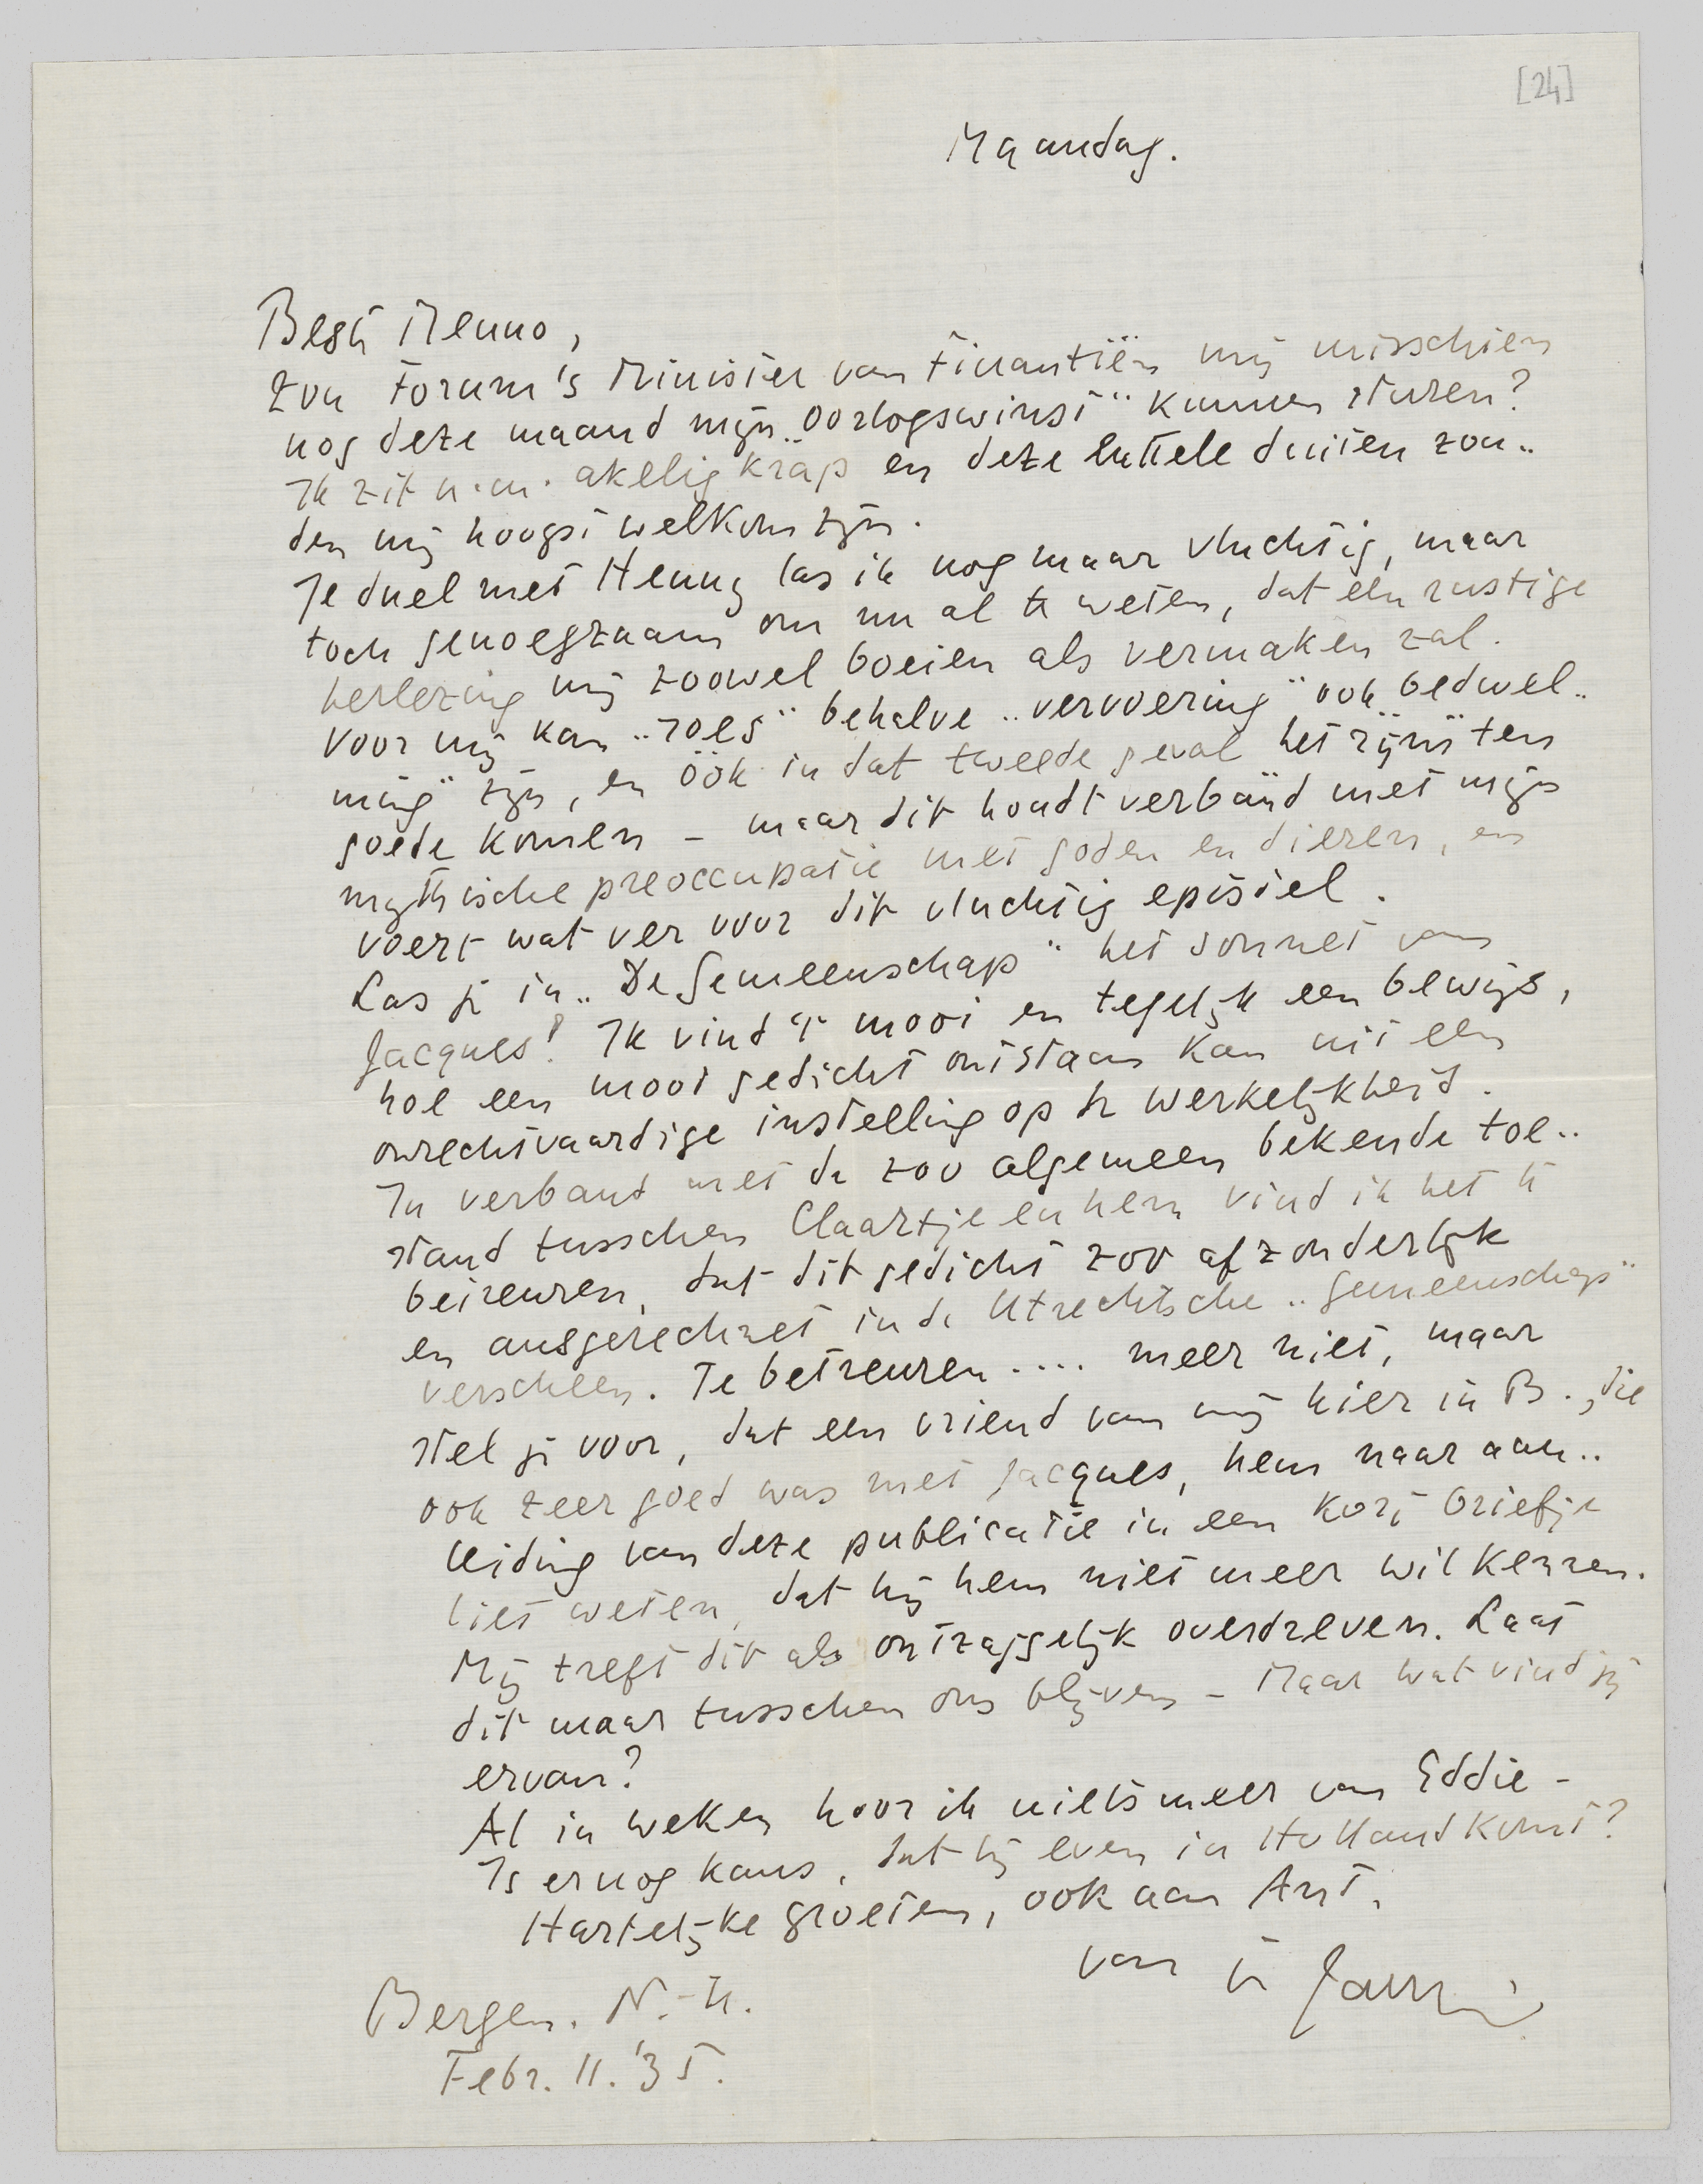 [24]
Maandag.
Beste Menno,
Zou Forum's Minister van Finantiën mij misschien
nog deze maand mijn „oorlogswinst" kunnen sturen?
Ik zit n.m. akelig krap en deze luttele duiten zou..
den mij hoogst welkom zijn.
Je duel met Henny las ik nog maar vluchtig, maar
toch genoegzaam om nu al te weten, dat een rustige
herlezing mij zoowel boeien als vermaken zal.
Voor mij kan „roes" behalve „vervoering" ook „bedwel..
ming" zijn, en óók in dat tweede geval het rijm ten
goede komen – maar dit houdt verband met mijn
mythische preoccupatie met goden en dieren, en
voert wat ver voor dit vluchtig epistel.
Las je in „De Gemeenschap" het sonnet van
Jacques? Ik vind 't mooi en tegelijk een bewijs,
hoe een mooi gedicht ontstaan kan uit een
onrechtvaardige instelling op de werkelijkheid.
In verband met de zoo algemeen bekende toe..
stand tusschen Claartje en hem vind ik het te
betreuren, dat dit gedicht zoo afzonderlijk
en ausgerechnet in de Utrechtsche „Gemeenschap"
verscheen. Te betreuren .... meer niet, maar
stel je voor, dat een vriend van mij hier in B., die
ook zeer goed was met Jacques, hem naar aan..
leiding van deze publicatie in een kort briefje
liet weten, dat hij hem niet meer wil kennen.
Mij treft dit als ontzaggelijk overdreven. Laat
dit maar tusschen ons blijven – Maar wat vind jij
ervan?
Al in weken hoor ik niets meer van Eddie –
Is er nog kans, dat hij even in Holland komt?
Hartelijke groeten, ook aan Ant,
van je Jany
Bergen. N.-H.
Febr. 11. '35.